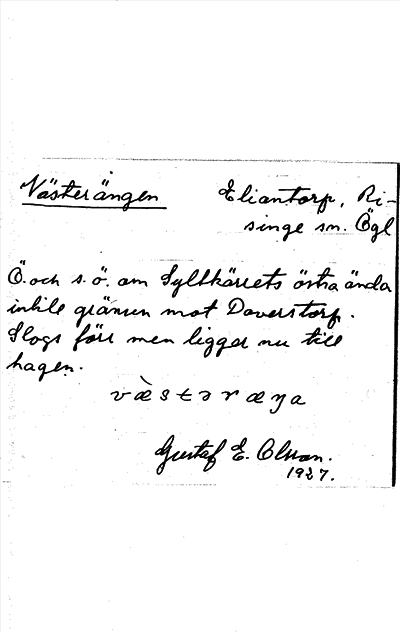 Västerängen Eliantorp, Ri-
singe sn. Ögl
Ö. och s.ö. om Syltkärrets östra ända
intill gränsen mot Daverstorp.
Slogs förr men ligger nu till
hagen.
væ̀stəræŋa
Gustaf E. Olsson.
1927.